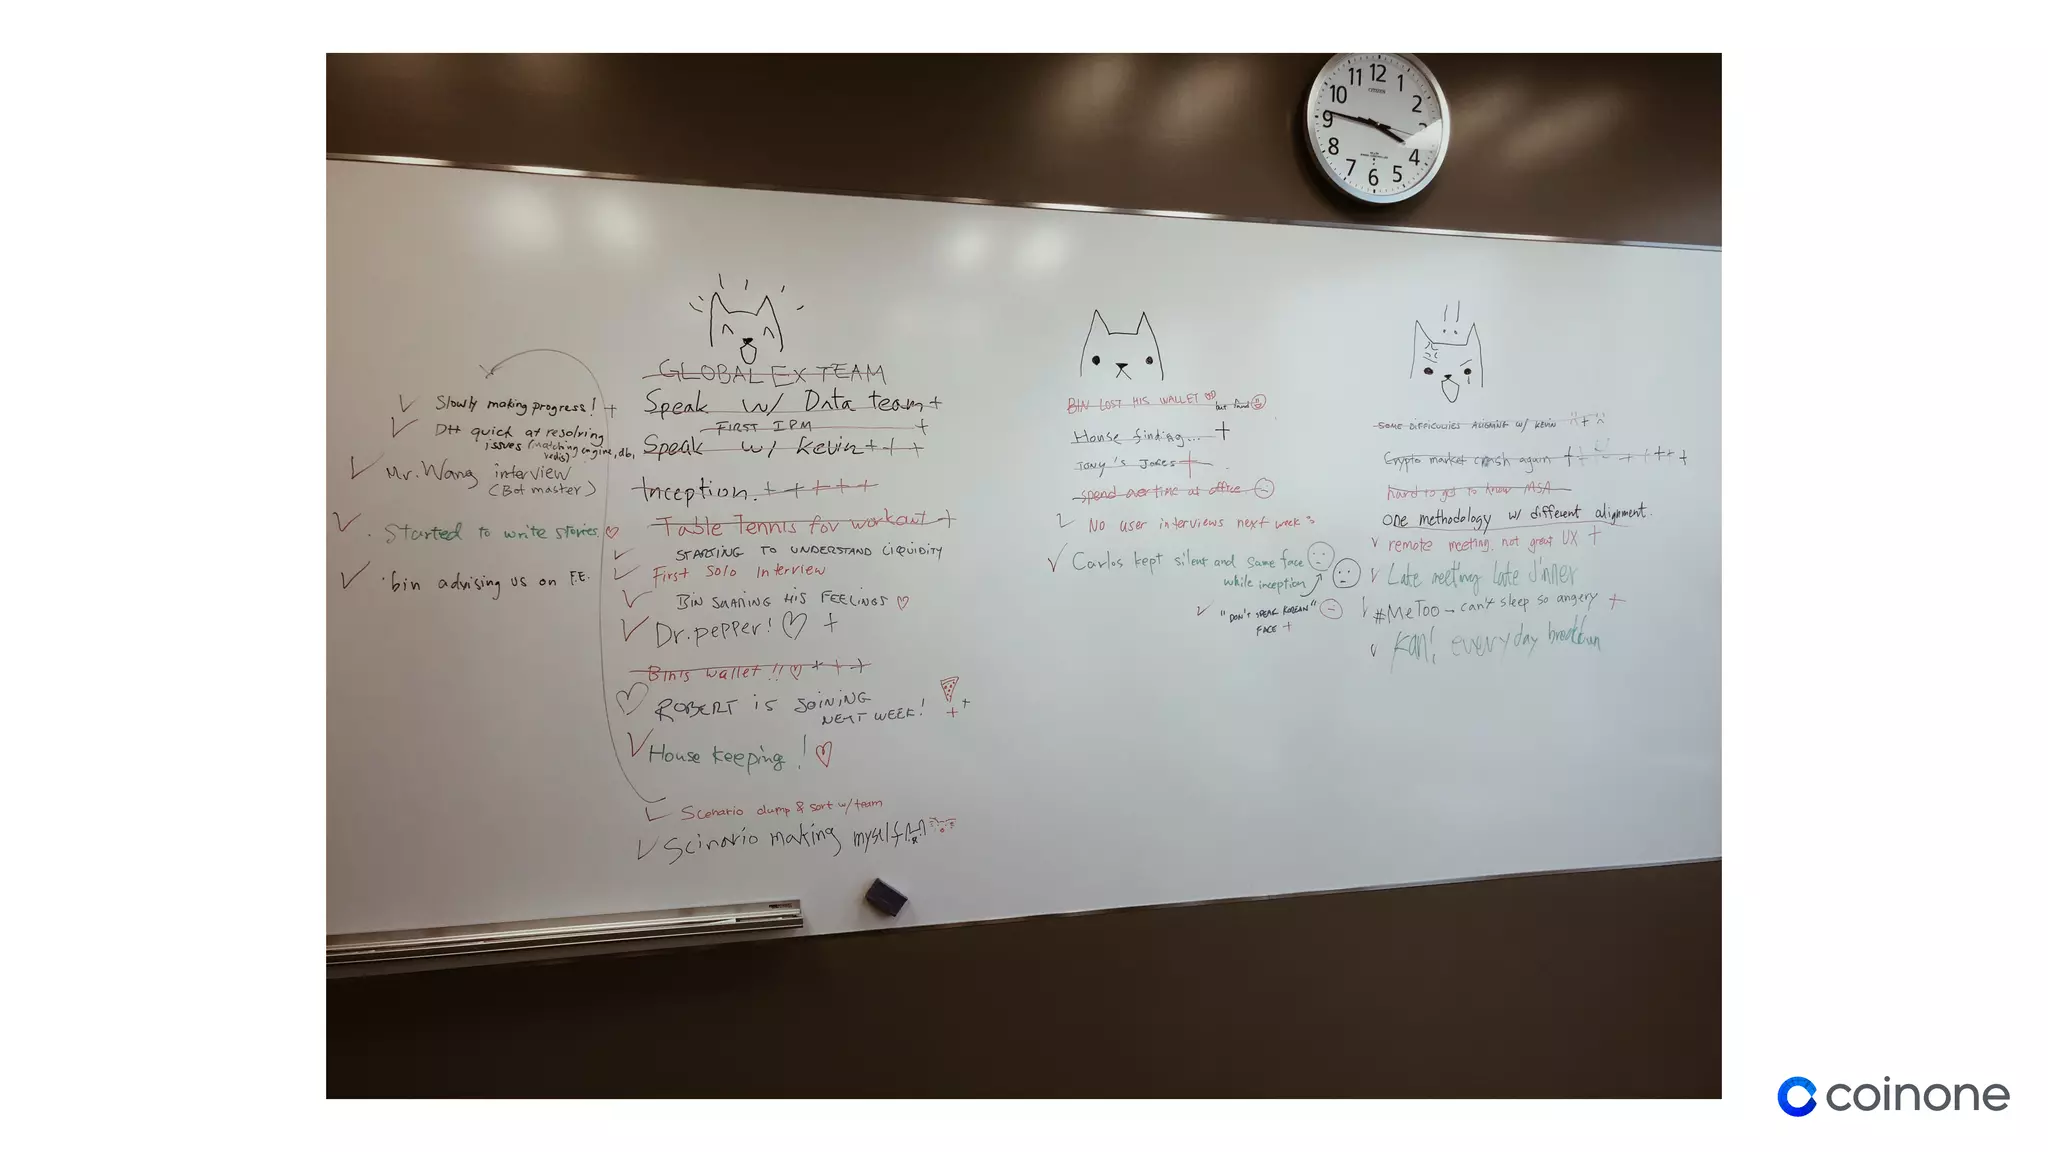 12
1
2
3
4
5
6
7
8
9
10
11
CITIZEN
Slowly making progress! +
DH quick at resolving
issues (matching engine, db,
redis)
Mr. Wang interview
(Bot master)
Started to write stories.
bin advising us on F.E.
GLOBAL EX TEAM
Speak w/ Data team +
FIRST IPM +
Speak w/ Kevin + + +
Inception. + + + + +
Table Tennis for workout +
STARTING TO UNDERSTAND LIQUIDITY
First Solo Interview
BIN SHARING HIS FEELINGS
Dr. pepper! +
Bin's wallet!! + + +
ROBERT IS JOINING
NEXT WEEK! + +
House keeping!
Scenario dump & sort w/ team
Scinario making myself
BIN LOST HIS WALLET but found
House finding... +
TONY'S JOKES +
spend overtime at office
No user interviews next week
Carlos kept silent and same face
while inception
"DON'T SPEAK KOREAN"
FACE +
SOME DIFFICULTIES ALIGNING W/ KEVIN +
Crypto market crash again + + + + + + +
hard to get to know MSA
one methodology w/ different alignment.
remote meeting. not great UX +
Late meeting Late dinner
#MeToo - can't sleep so angery +
Kan! everyday breakdown
coinone